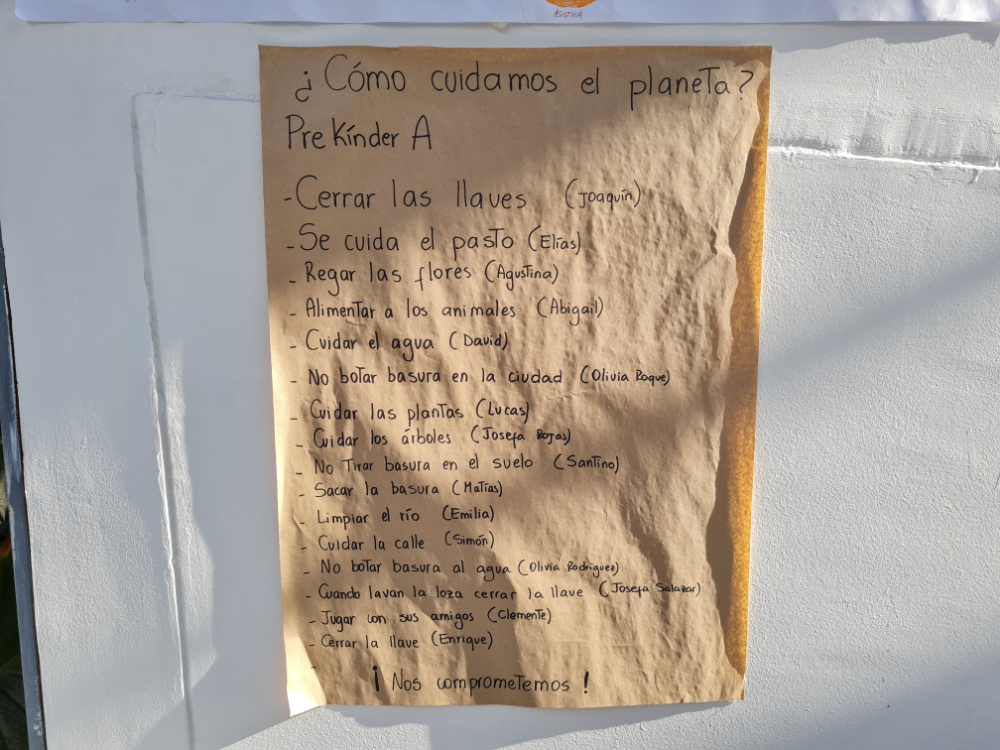 AGUSTINA
¿Cómo cuidamos el planeta?
Pre Kínder A
- Cerrar las llaves (Joaquín)
- Se cuida el pasto (Elías)
- Regar las flores (Agustina)
- Alimentar a los animales (Abigail)
- Cuidar el agua (David)
- No botar basura en la ciudad (Olivia Roque)
- Cuidar las plantas (Lucas)
- Cuidar los árboles (Josefa Rojas)
- No Tirar basura en el suelo (Santino)
- Sacar la basura (Matías)
- Limpiar el río (Emilia)
- Cuidar la calle (Simón)
- No botar basura al agua (Olivia Rodriguez)
- Cuando lavan la loza cerrar la llave (Josefa Salazar)
- Jugar con sus amigos (Clemente)
- Cerrar la llave (Enrique)
-
¡Nos comprometemos!